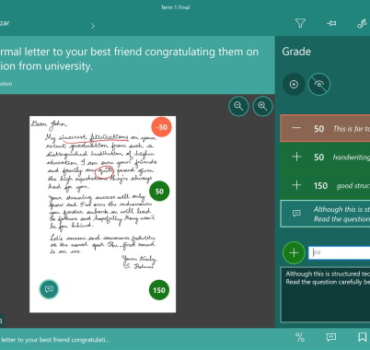 Term 1 Final
zar
rmal letter to your best friend congratulating them on
ion from university.
Grade
Dear John,
My sincerest felicitations on your
recent graduation from such a
distinguished institution of higher
education. I am sure your friends
and family are quite proud given
the high expectations they've always
had for you.
Your stunning success will only
grow and I'm sure the
you further embark on will lead
to fortune and hopefully
be far behind.
Let's convene and
at the usual spot. The first round
is on me.
Yours Truly,
-50
50
150
50 This is far to
50 handwriting
150 good struc
Although this is st
Read the question
Although this is structured tec
Read the question carefully be
letter to your best friend congratulati...